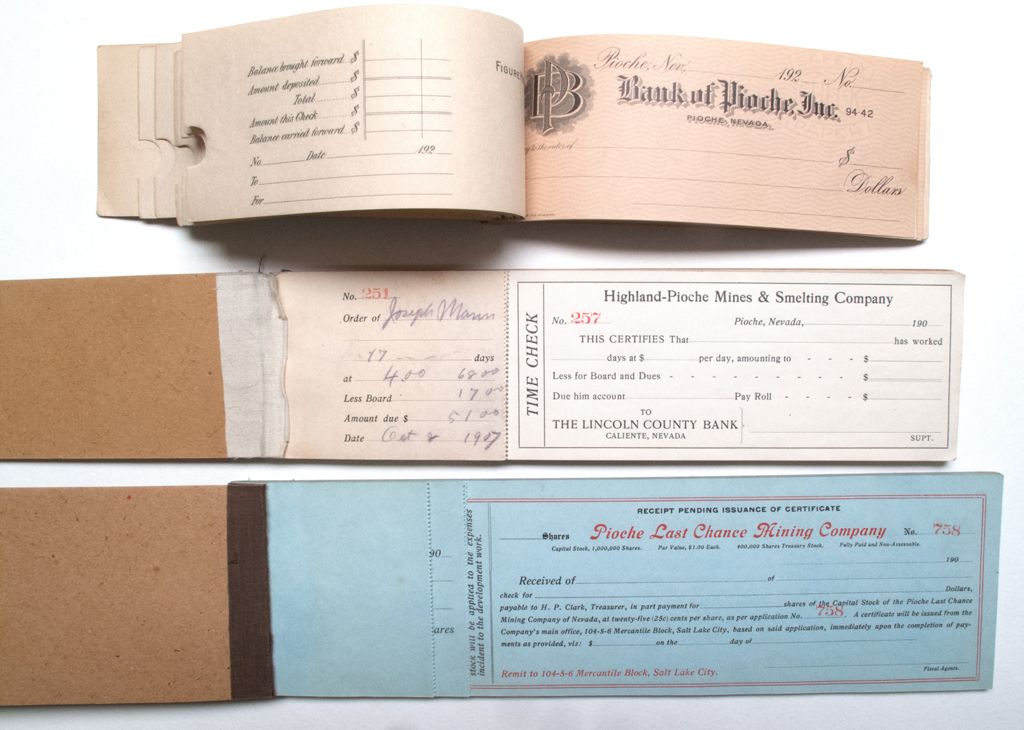 Balance brought forward $
Amount deposited $
Total $
Amount this Check $
Balance carried forward $
No. Date 192
To
For
PB
Pioche, Nev. 192 No.
Bank of Pioche, Inc. 94-42
PIOCHE, NEVADA
to the order of $
Dollars
No. 251
Order of Joseph Mann
17 days
at 4.00 68 00
Less Board 17 00
Amount due $ 51 00
Date Oct 8 1907
TIME CHECK
Highland-Pioche Mines & Smelting Company
No. 257 Pioche, Nevada, 190
THIS CERTIFIES That has worked
days at $ per day, amounting to - - - $
Less for Board and Dues - - - - - - - - - $
Due him account Pay Roll - - - - $
TO
THE LINCOLN COUNTY BANK
CALIENTE, NEVADA
SUPT.
90
ares
stock will be applied to the expenses
incident to the development work.
RECEIPT PENDING ISSUANCE OF CERTIFICATE
Shares Pioche Last Chance Mining Company No. 758
Capital Stock, 1,000,000 Shares. Par Value, $1.00 Each. 400,000 Shares Treasury Stock. Fully Paid and Non-Assessable.
190
Received of of
check for Dollars,
payable to H. P. Clark, Treasurer, in part payment for shares of the Capital Stock of the Pioche Last Chance
Mining Company of Nevada, at twenty-five (25c) cents per share, as per application No. 758. A certificate will be issued from the
Company's main office, 104-5-6 Mercantile Block, Salt Lake City, based on said application, immediately upon the completion of pay-
ments as provided, viz: $ on the day of
Fiscal Agents.
Remit to 104-5-6 Mercantile Block, Salt Lake City.